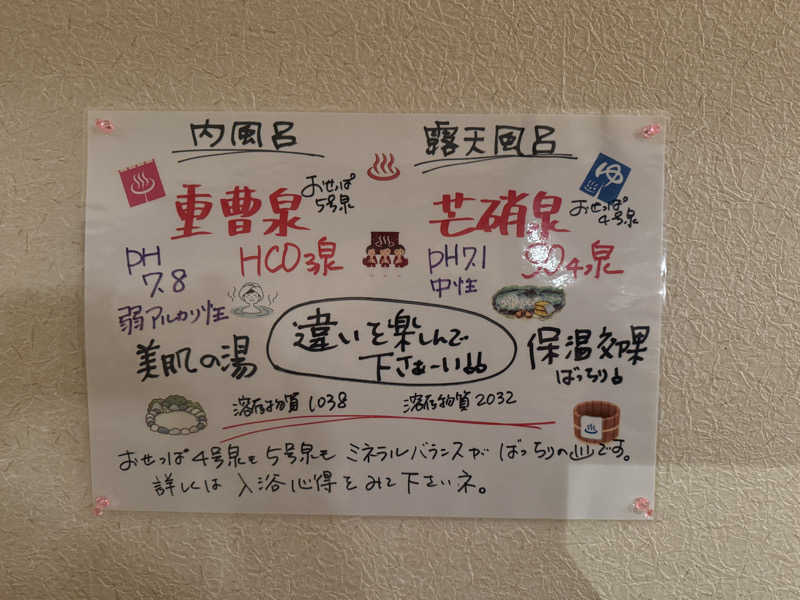 内風呂
露天風呂
重曹泉
おせっぱ
5号泉
芒硝泉
おせっぱ
4号泉
ゆ
PH
7.8
HCO3泉
弱アルカリ性
PH7.1
中性
SO4泉
美肌の湯
違いを楽しんで
下さぁーい!!
保温効果
ばっちり!
溶存物質1038
溶存物質2032
おせっぱ4号泉も5号泉も ミネラルバランスが ばっちりの♨です。
詳しくは 入浴心得をみて下さいネ。